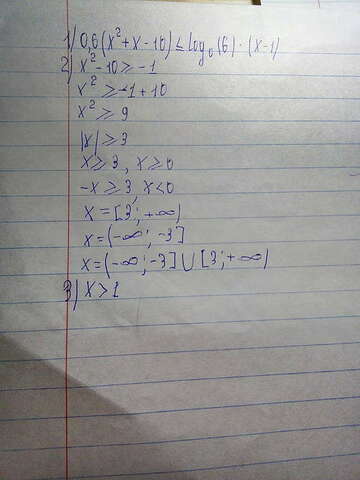 1) 0,6(x²+x-10) ≤ log₆(6)·(x-1)
2) x²-10 ≥ -1
x² ≥ -1+10
x² ≥ 9
|x| ≥ 3
x ≥ 3, x ≥ 0
-x ≥ 3, x < 0
x = [3; +∞)
x = (-∞; -3]
x = (-∞; -3] ∪ [3; +∞)
3) x > 1